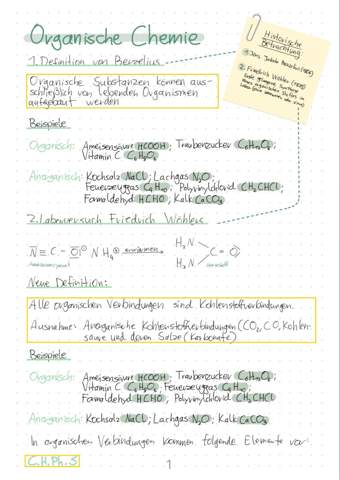 Organische Chemie
Historische
Betrachtung
Jöns Jakob
2. Friedrich Wöhler
1. Definition von Berzelius
Organische Substanzen können aus-
schließlich von lebenden Organismen
aufgebaut werden
Beispiele
Organisch: Ameisensäure HCOOH; Traubenzucker C₆H₁₂O₆;
Vitamin C C₆H₈O₆
Anorganisch: Kochsalz NaCl; Lachgas N₂O;
Feuerzeuggas C₄H₁₀; Polyvinylchlorid CH₂CHCl;
Formaldehyd HCHO; Kalk CaCO₃
2. Laborversuch Friedrich Wöhlers
N ≡ C – O⊖ NH₄⊕ erwärmen H₂N C = O
H₂N
Harnstoff
Neue Definition:
Alle organischen Verbindungen sind Kohlenstoffverbindungen.
Ausnahme: Anorganische Kohlenstoffverbindungen (CO₂, CO, Kohlen-
säure und deren Salze (Karbonate)
Beispiele
Organisch: Ameisensäure HCOOH; Traubenzucker C₆H₁₂O₆;
Vitamin C C₆H₈O₆; Feuerzeuggas C₄H₁₀;
Formaldehyd HCHO; Polyvinylchlorid CH₂CHCl
Anorganisch: Kochsalz NaCl; Lachgas N₂O; Kalk CaCO₃
In organischen Verbindungen kommen folgende Elemente vor:
C, H, Ph, S
1